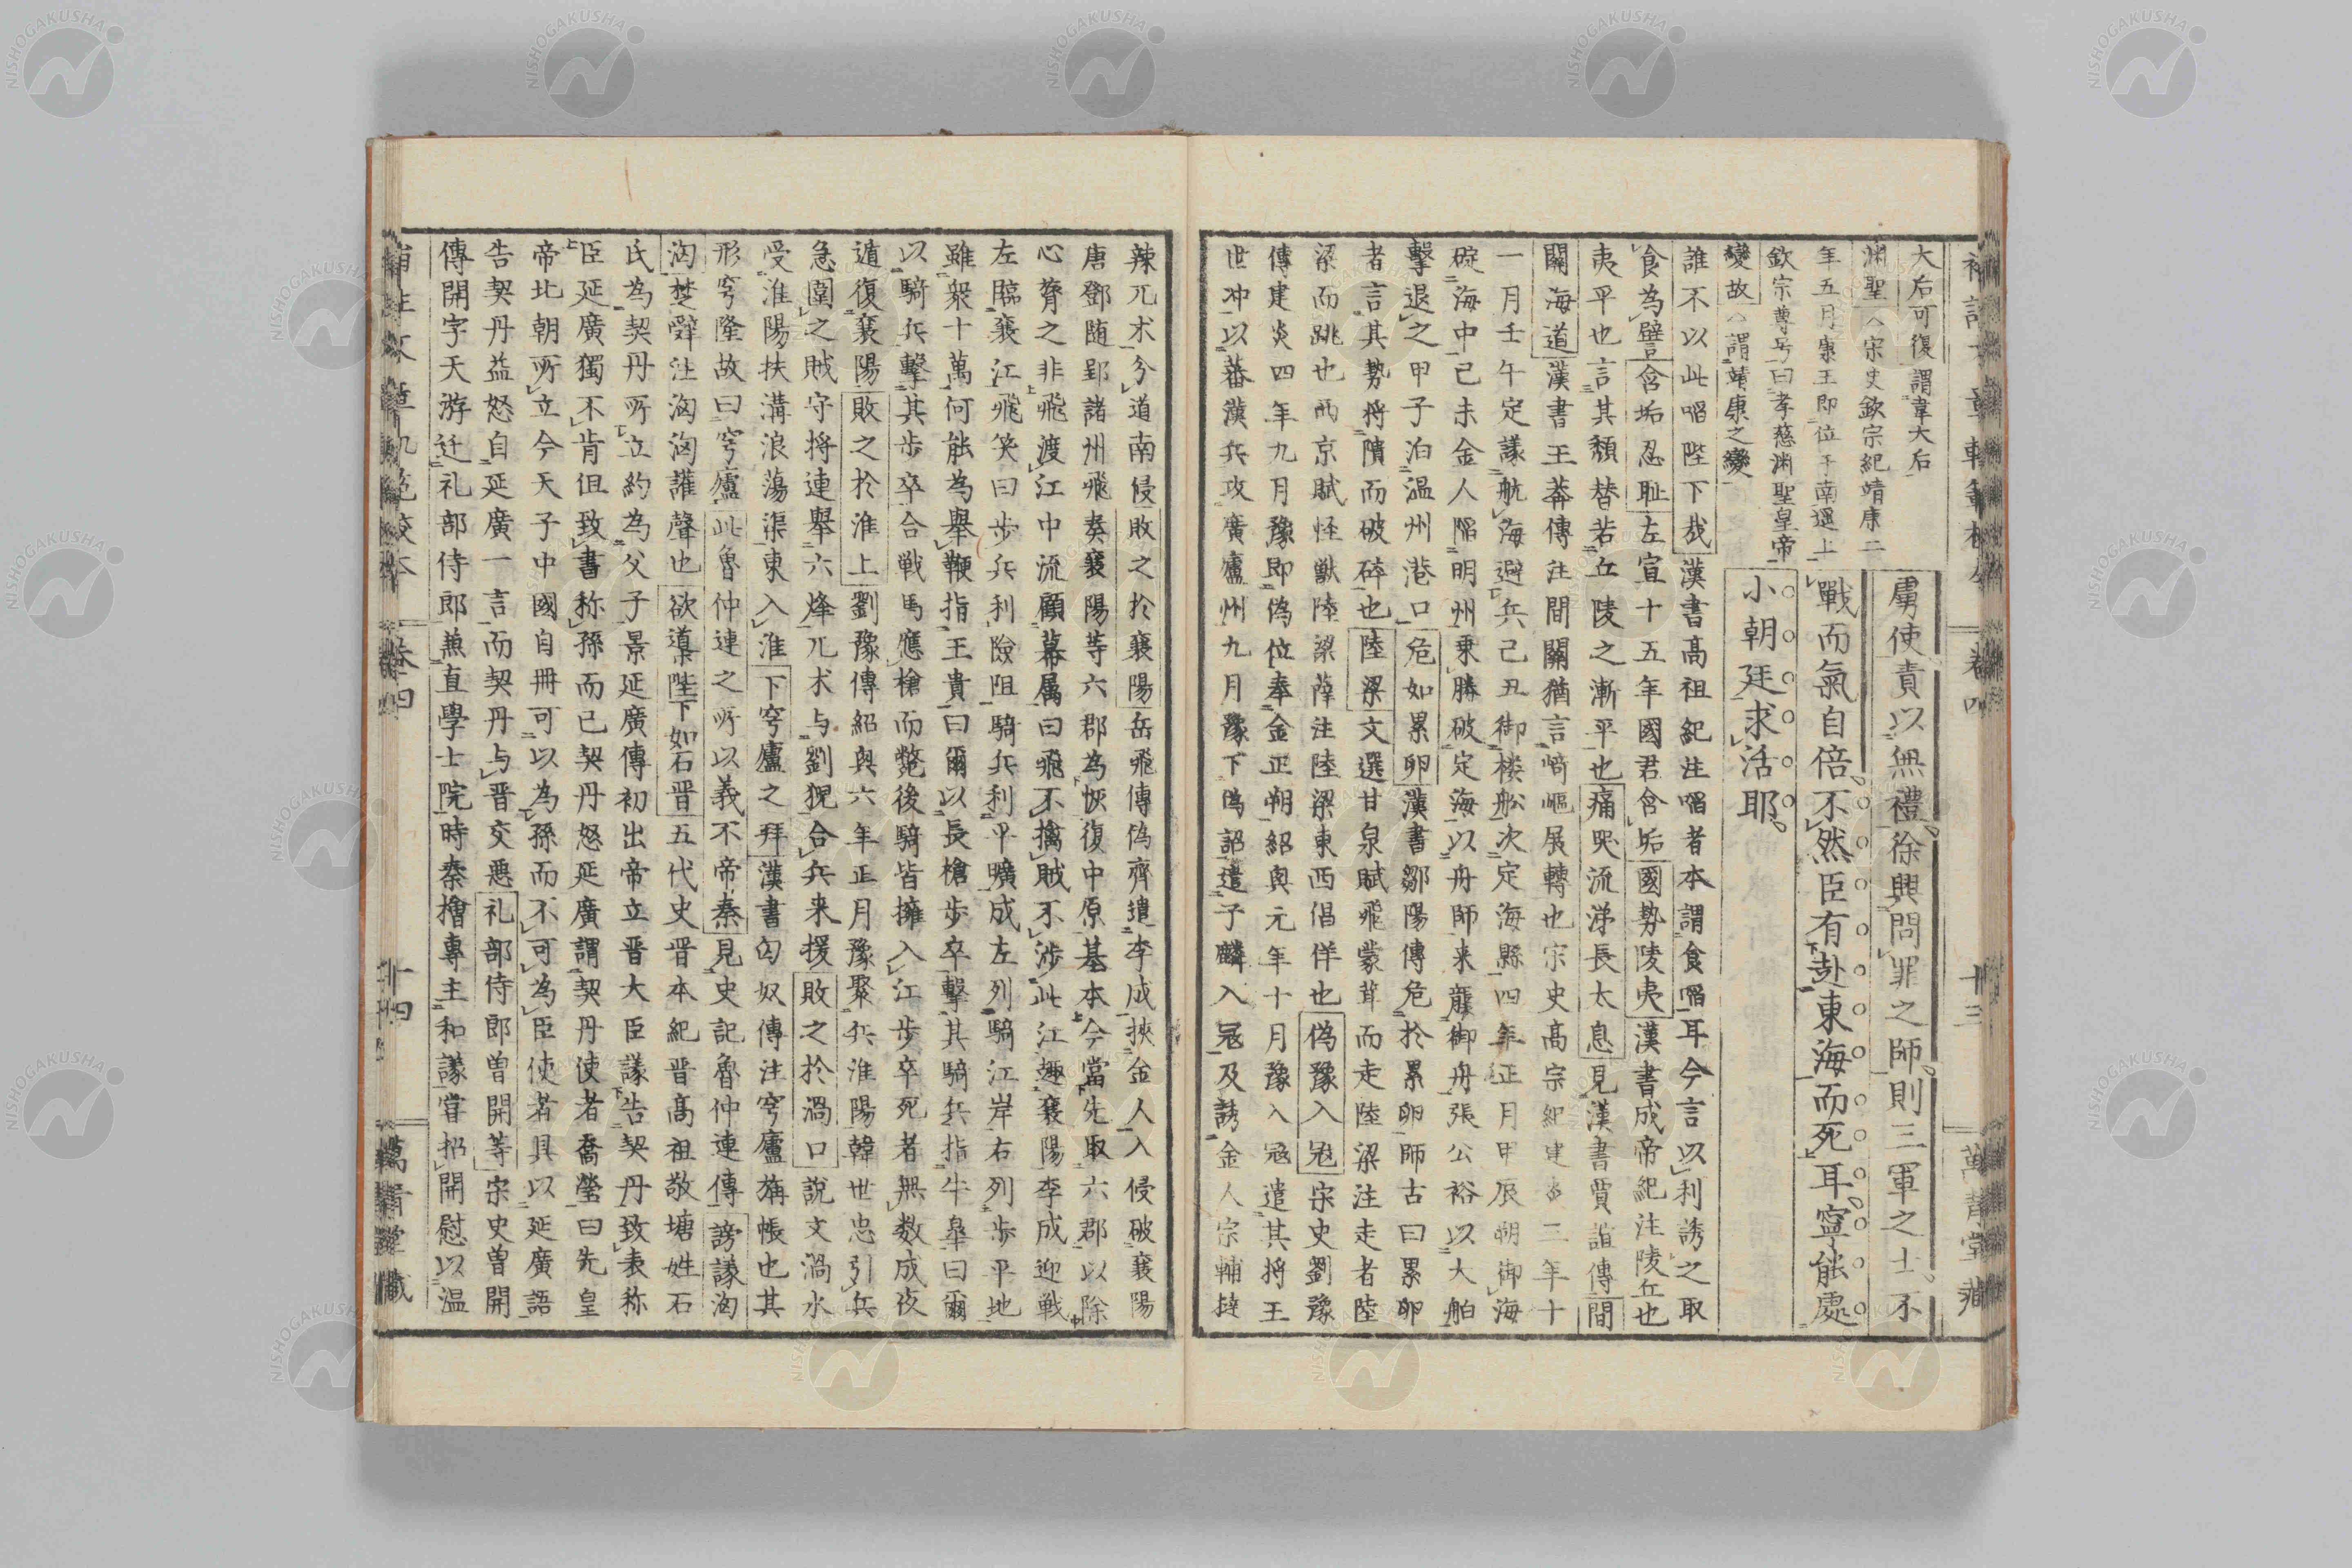 大后可復謂韋大后
渊聖宋史欽宗紀靖康二
年五月康王即位于南遥上
欽宗尊号曰孝慈渊聖皇帝
變故謂靖康之變
虜使責以無禮徐興問罪之師則三軍之士不
戰而氣自倍不然臣有赴東海而死耳寧能處
小朝廷求活耶
誰不以此啗陛下哉漢書高祖紀注啗者本謂食啗耳今言以利誘之取
食為譬含垢忍耻左宣十五年國君含垢國勢陵夷漢書成帝紀注陵丘也
夷平也言其頽替若丘陵之漸平也痛哭流涕長太息見漢書賈誼傳間
關海道漢書王莽傳注間關猶言崎嶇展轉也宋史高宗紀建炎三年十
一月壬午定議航海避兵己丑御楼舩次定海縣四年正月甲辰朔御海
碇海中己未金人陷明州乘勝破定海以舟師来襲御舟張公裕以大舶
擊退之甲子泊温州港口危如累卵漢書鄒陽傳危於累卵師古曰累卵
者言其勢将隤而破碎也陸梁文選甘泉賦飛蒙茸而走陸梁注走者陸
梁而跳也西京賦怪獣陸梁薛注陸梁東西倡佯也偽豫入冦宋史劉豫
傳建炎四年九月豫即偽位奉金正朔紹興元年十月豫入冦遣其将王
世冲以蕃漢兵攻廬州九月豫下偽詔遣子麟入冦及誘金人宗輔撻
辣兀术分道南侵敗之於襄陽岳飛傳偽齊遣李成挾金人入侵破襄陽
唐鄧随郢諸州飛奏襄陽等六郡為恢復中原基本今當先取六郡以除
心膂之非飛渡江中流顧幕属曰飛不擒賊不渉此江趣襄陽李成迎戦
左臨襄江飛笑曰歩兵利險阻騎兵利平曠成左列騎江岸右列歩平地
雖衆十萬何能為舉鞭指王貴曰爾以長槍歩卒擊其騎兵指牛皋曰爾
以騎兵擊其歩卒合戦馬應槍而斃後騎皆擁入江歩卒死者無数成夜
遁復襄陽敗之於淮上劉豫傳紹興六年正月豫聚兵淮陽韓世忠引兵
急圍之賊守将連舉六烽兀术与劉猊合兵来援敗之於渦口說文渦水
受淮陽扶溝浪蕩渠東入淮下穹廬之拜漢書匈奴傳注穹廬旃帳也其
形穹隆故曰穹廬此魯仲連之所以義不帝秦見史記魯仲連傳謗議洶
洶楚辭注洶洶讙聲也欲導陛下如石晋五代史晋本紀晋高祖敬塘姓石
氏為契丹所立約為父子景延廣傳初出帝立晋大臣議告契丹致表称
臣延廣獨不肯但致書称孫而已契丹怒延廣謂契丹使者喬瑩曰先皇
帝北朝所立今天子中國自冊可以為孫而不可為臣使者具以延廣語
告契丹益怒自延廣一言而契丹与晋交悪礼部侍郎曽開等宗史曽開
傳開字天游迁礼部侍郎兼直學士院時秦檜専主和議嘗招開慰以温
卷四 十四